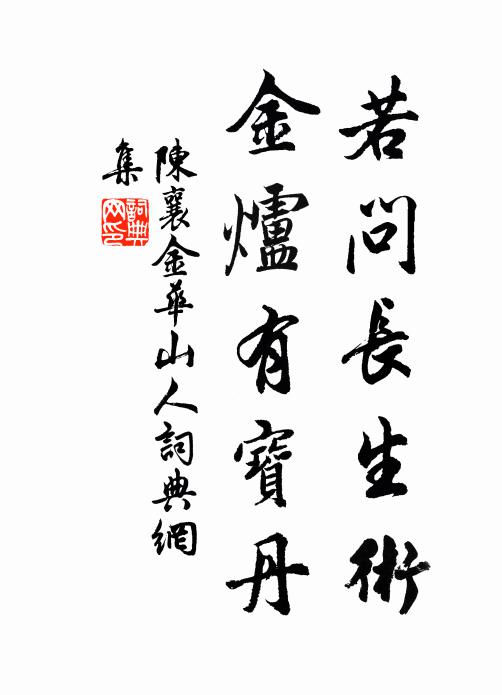 若問長生術
金爐有寶丹
陳襄金華山人詞典網
集
詞典网印